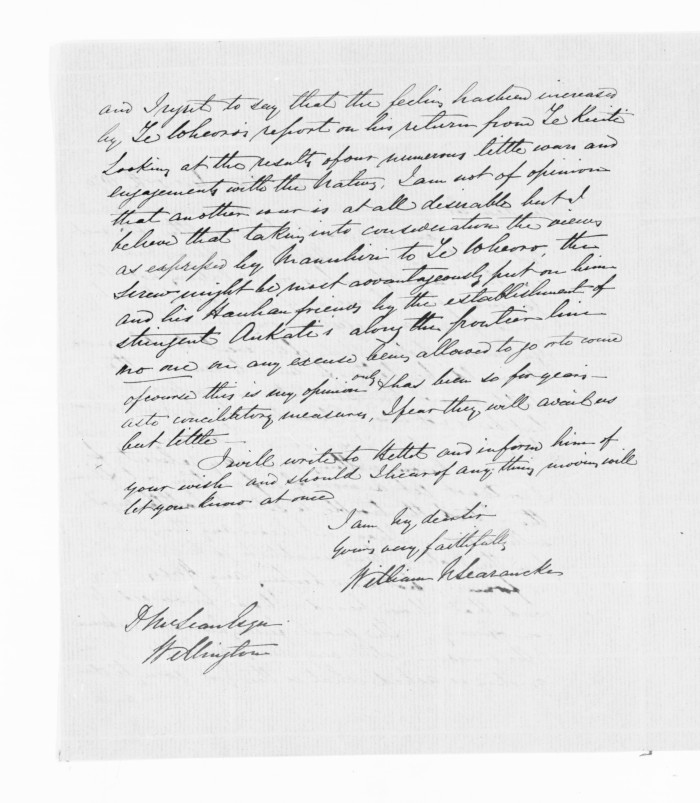 and I regret to say that the feeling has been increased
by Te Wheoro's report on his return from Te Kuiti
Looking at the results of our numerous little wars and
engagements with the Natives, I am not of opinion
that another war is at all desirable but I
believe that taking into consideration the views
as expressed by Manuhiri to Te Wheoro, the
screw might be most advantageously put on him
and his Hauhau friends by the establishment of
stringent Aukati's along the frontier line
no one on any excuse being allowed to go or to come
of course this is my opinion only & has been so for years
as to conciliatory measures, I fear they will avail us
but little
I will write to Hettit and inform him of
your wish and should I hear of any thing moving will
let you know at once
I am My dear Sir
Yours very faithfully
William N Searancke
D McLean Esqre
Wellington